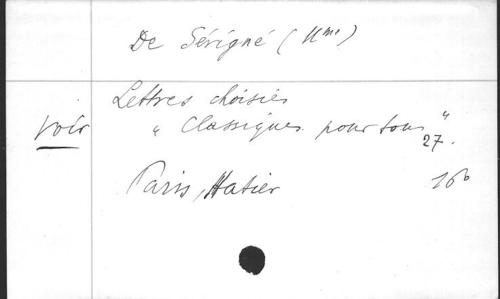 De Sévigné (Mme)
Lettres choisies
voir " Classiques pour tous "
27.
Paris, Hatier 16°